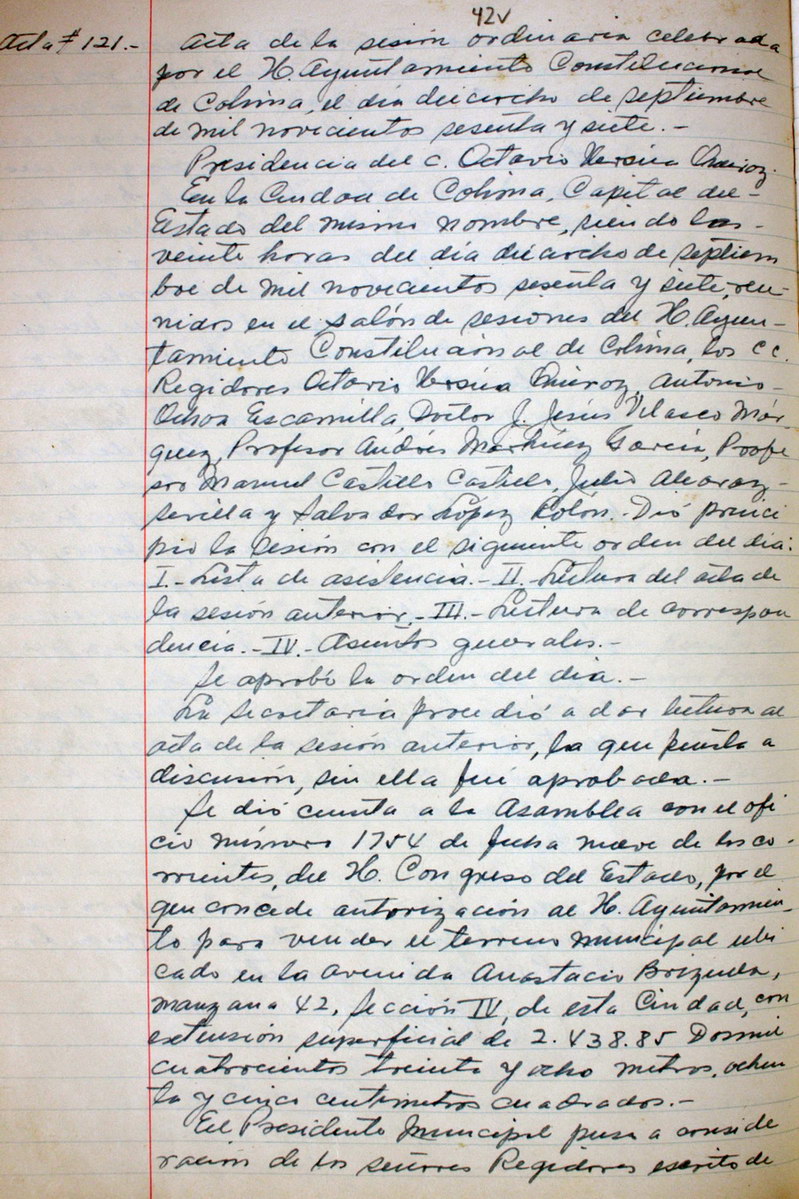 42v
Acta # 121.-
Acta de la sesión ordinaria celebrada
por el H. Ayuntamiento Constitucional
de Colima, el día dieciocho de septiembre
de mil novecientos sesenta y siete.-
Presidencia del C. Octavio
En la Ciudad de Colima, Capital del-
Estado del mismo nombre, siendo las-
veinte horas del día dieciocho de septiem
bre de mil novecientos sesenta y siete, reu-
nidos en el salón de sesiones del H. Ayun-
tamiento Constitucional de Colima, los CC.
Regidores Octavio Antonio-
Ochoa Escamilla, Doctor J. Jesús Velasco Már
quez, Profesor Andrés Martínez García, Profe
sro Manuel Castillo Castillo, Julio Alvarez-
Sevilla y Salvador López Colón.- Dió princi
pio la sesión con el siguiente orden del día:
I.- Lista de asistencia.- II.- Lectura del acta de
la sesión anterior.- III.- Lectura de correspon
dencia.- IV.- Asuntos generales.-
Se aprobó la orden del día.-
La Secretaría procedió a dar lectura al
acta de la sesión anterior, la que puesta a
discusión, sin ella fué aprobada.-
Se dió cuenta a la Asamblea con el ofi
cio número 1754 de fecha nueve de los co-
rrientes, del H. Congreso del Estado, por el
que concede autorización al H. Ayuntamien-
to para vender el terreno municipal ubi
cado en la avenida Anastacio Brizuela,
manzana 42, Sección IV, de esta Ciudad, con
extensión superficial de 2.438.85 Dosmil
cuatrocientos treinta y ocho metros, ochen
ta y cinco centímetros cuadrados.-
El Presidente Municipal puso a conside
ración de los señores Regidores escrito de